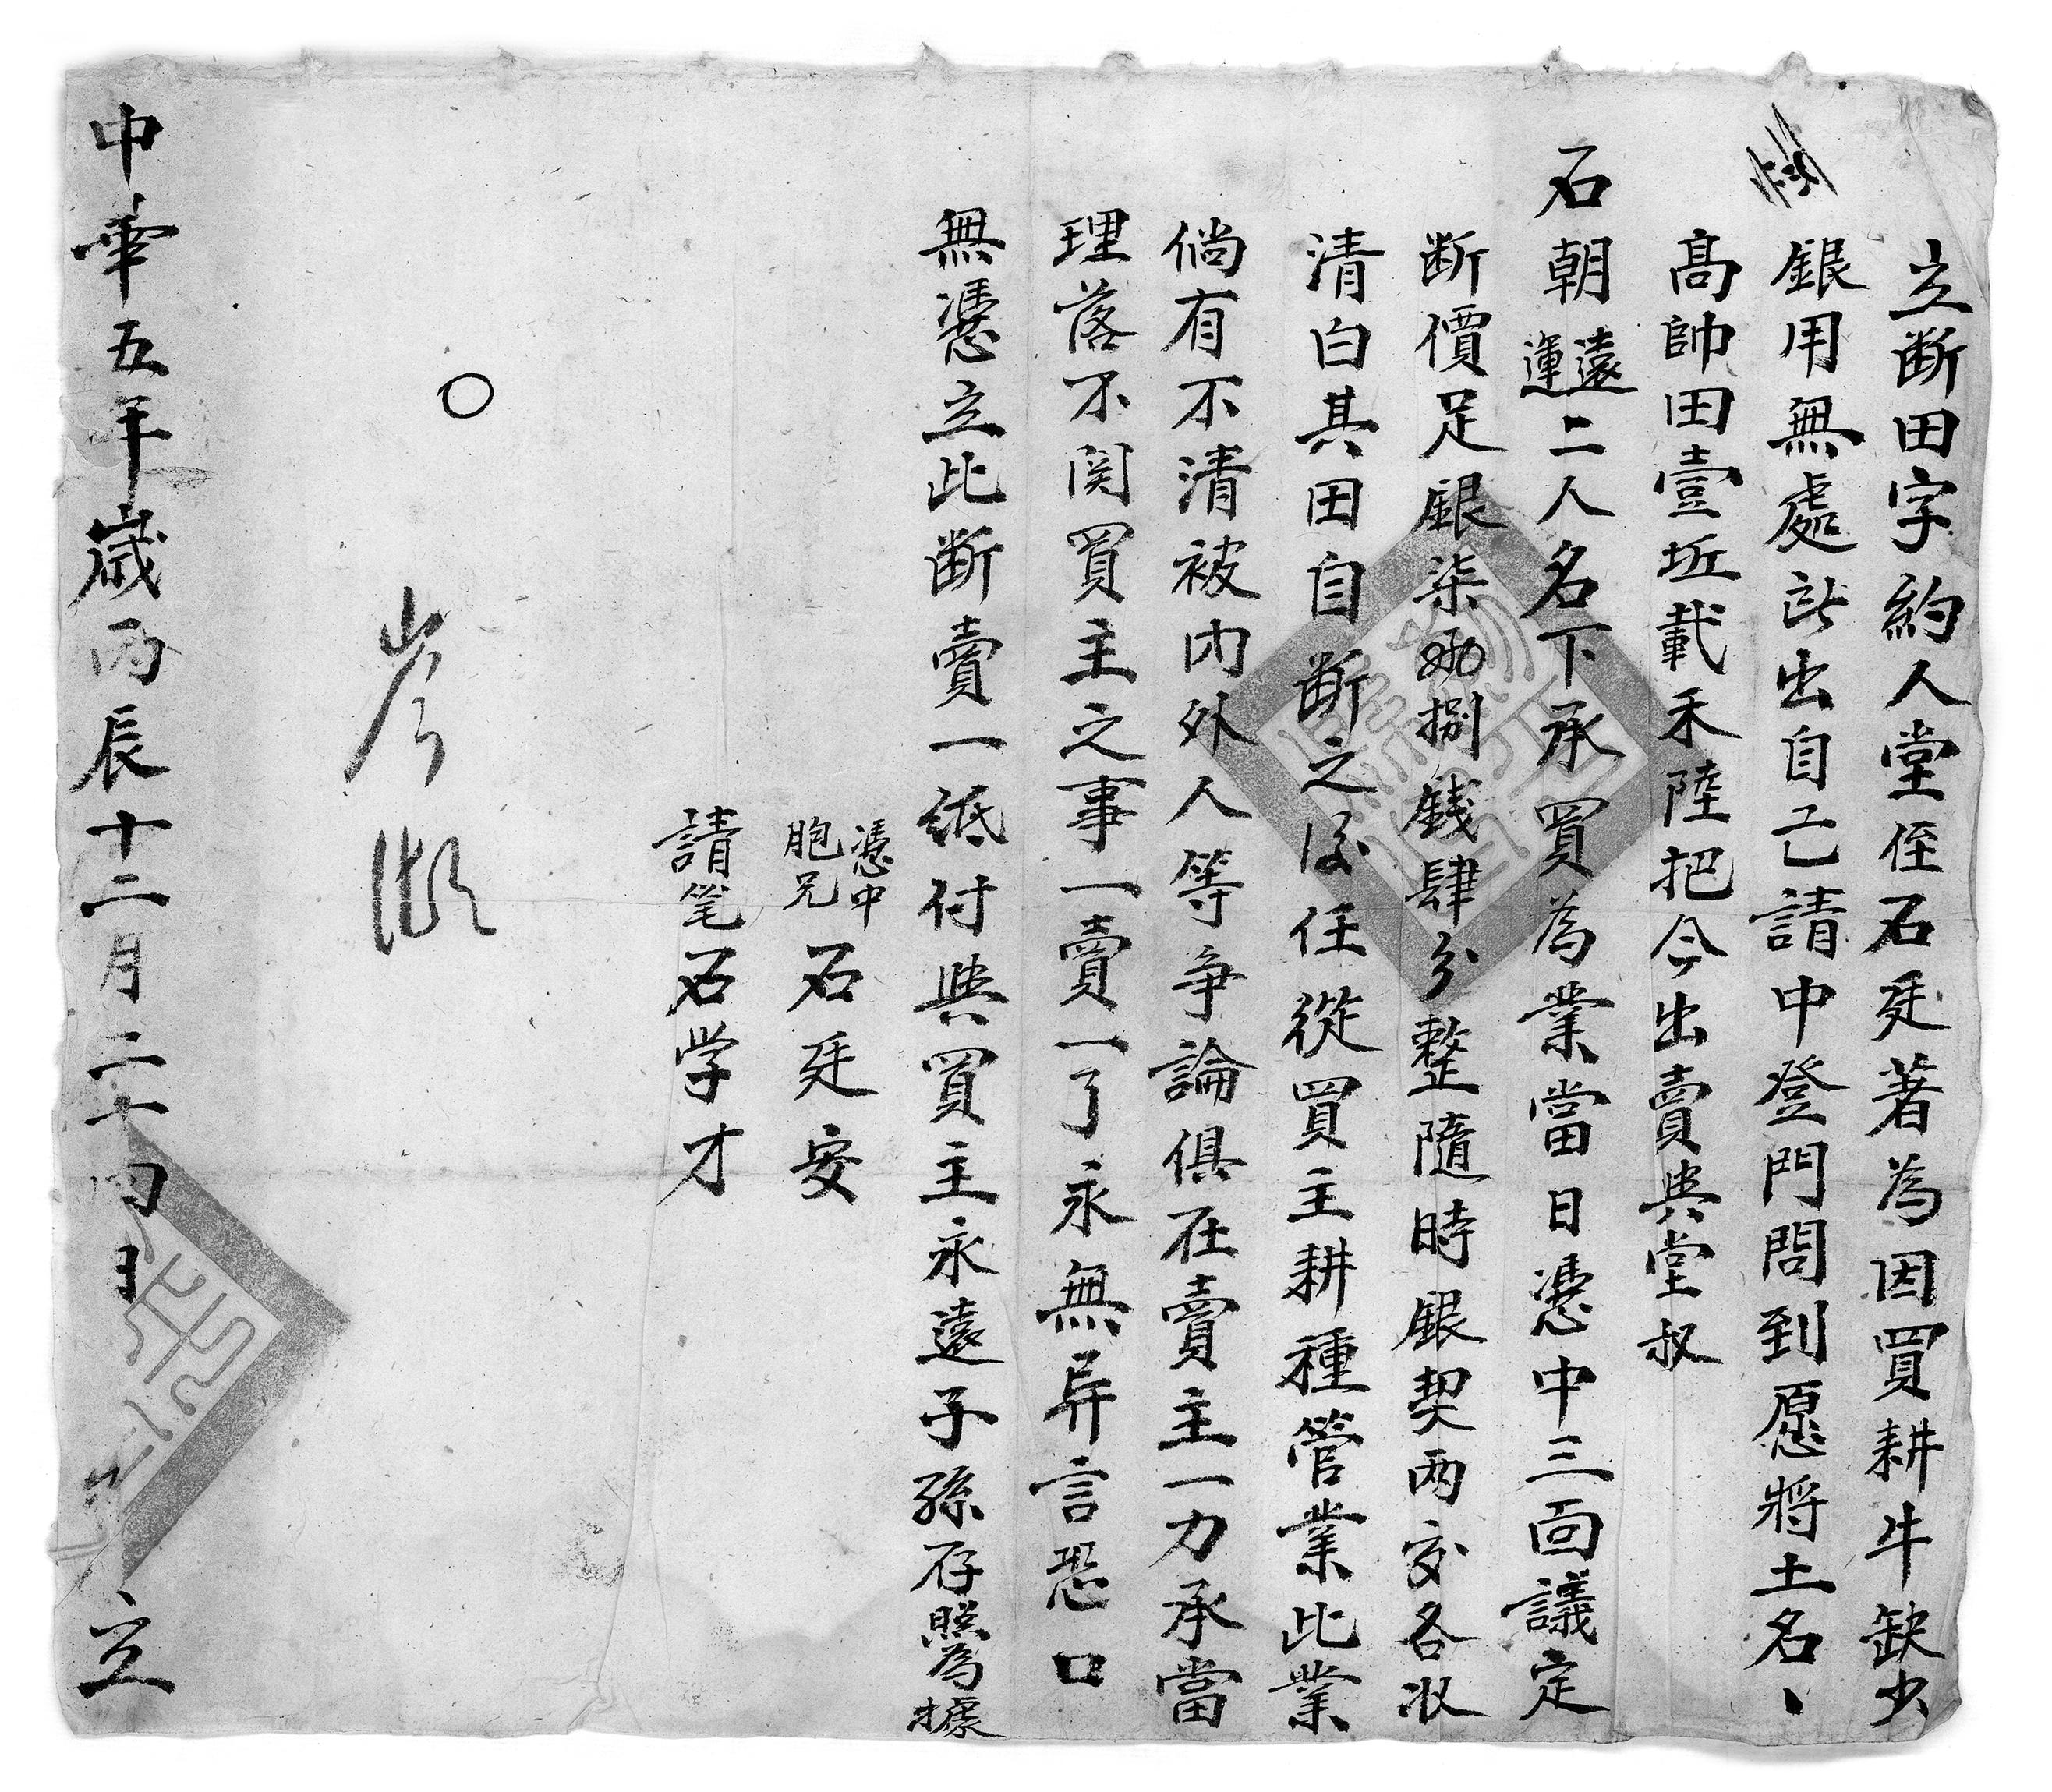 立断田字約人堂侄石廷著為因買耕牛缺少
銀用無處計出自己請中登門問到愿將土名丶
高帥田壹坵載禾陸把今出賣與堂叔
石朝遠運二人名下承買為業當日憑中三面議定
断價足銀柒兩捌錢肆分整隨時銀契兩交各收
清白其田自断之後任從買主耕種管業此業
倘有不清被内外人等争論俱在賣主一力承當
理落不関買主之事一賣一了永無异言恐口
無憑立此断賣一紙付與買主永遠子孫存照為據
憑中
胞兄石廷安
請笔石学才
中華五年歲丙辰十二月二十四日立